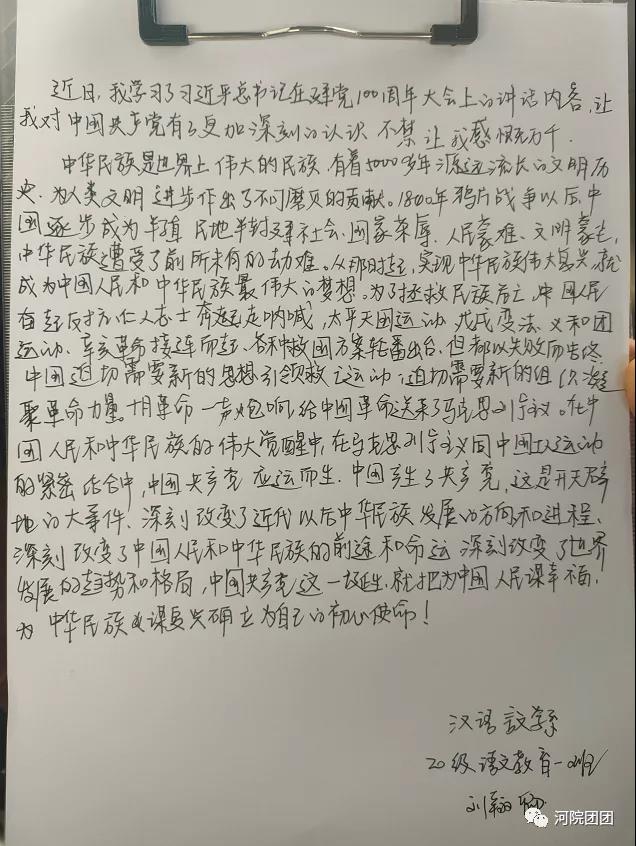 近日,我学习了习近平总书记在建党100周年大会上的讲话内容,让
我对中国共产党有了更加深刻的认识 不禁让我感慨万千.
中华民族是世界上伟大的民族.有着5000多年源远流长的文明历
史.为人类文明进步作出了不可磨灭的贡献。1840年鸦片战争以后,中
国逐步成为半殖民地半封建社会、国家蒙辱、人民蒙难、文明蒙尘,
中华民族遭受了前所未有的劫难。从那时起,实现中华民族伟大复兴,就
成为中国人民和中华民族最伟大的梦想.为了拯救民族危亡.中国人民
奋起反抗,仁人志士奔走呐喊,太平天国运动、戊戌变法、义和团
运动、辛亥革命接连而起、各种救国方案轮番出台,但都以失败而告终
中国迫切需要新的思想引领救亡运动,迫切需要新的组织凝
聚革命力量.十月革命一声炮响,给中国革命送来了马克思列宁主义。在中
国人民和中华民族的伟大觉醒中,在马克思列宁主义同中国工人运动
的紧密结合中,中国共产党应运而生.中国产生了共产党,这是开天辟
地的大事件、深刻改变了近代以后中华民族发展的方向和进程、
深刻改变了中国人民和中华民族的前途和命运 深刻改变了世界
发展的趋势和格局,中国共产党这一诞生,就把为中国人民谋幸福,
为中华民族谋复兴确立为自己的初心使命!
汉语言文学系
20级语文教育一班
刘
河院团团